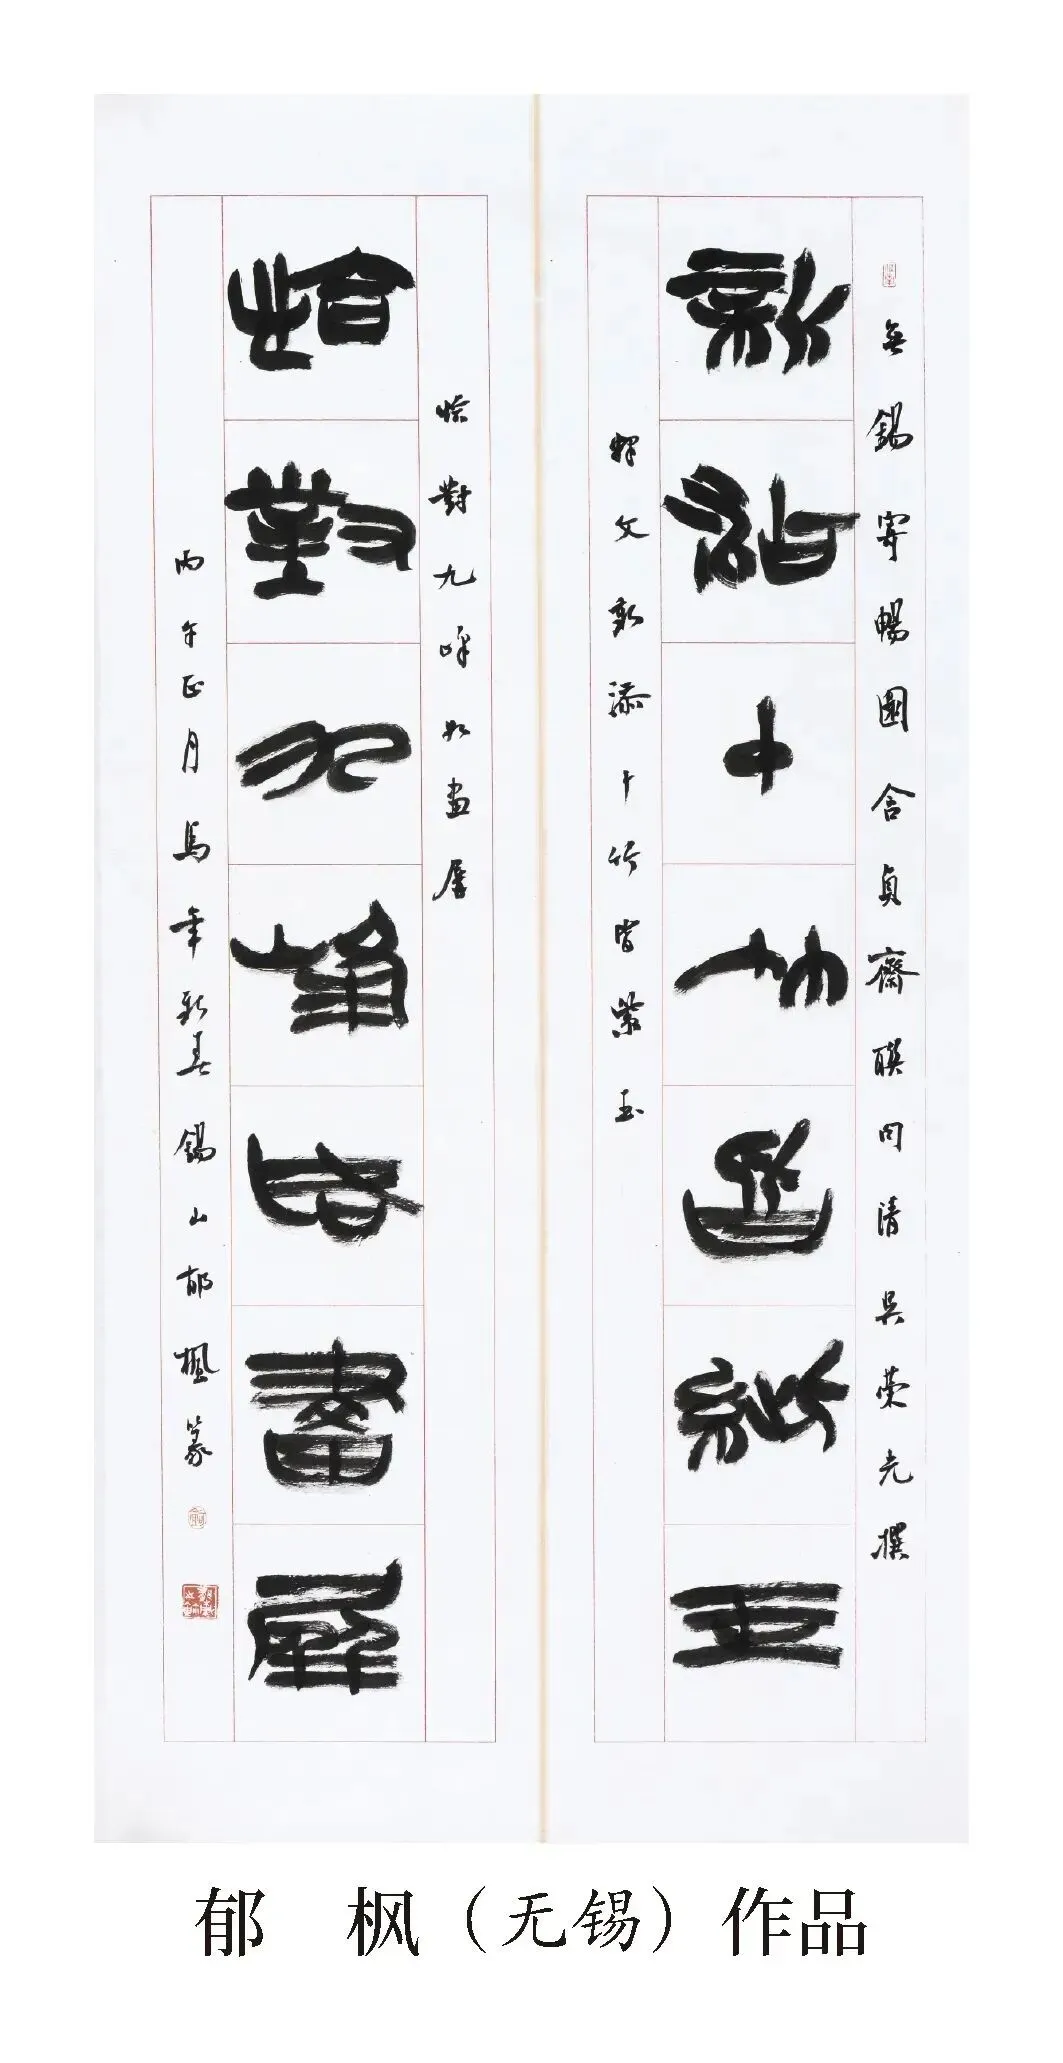 無錫寄暢園含貞齋聯句清吳榮光撰
新添十竹皆紫玉
釋文新添十竹皆紫玉
恰對九峰如畫屏
恰對九峰如畫屏
丙午正月馬年新春錫山郁楓篆
郁 枫（无锡）作品